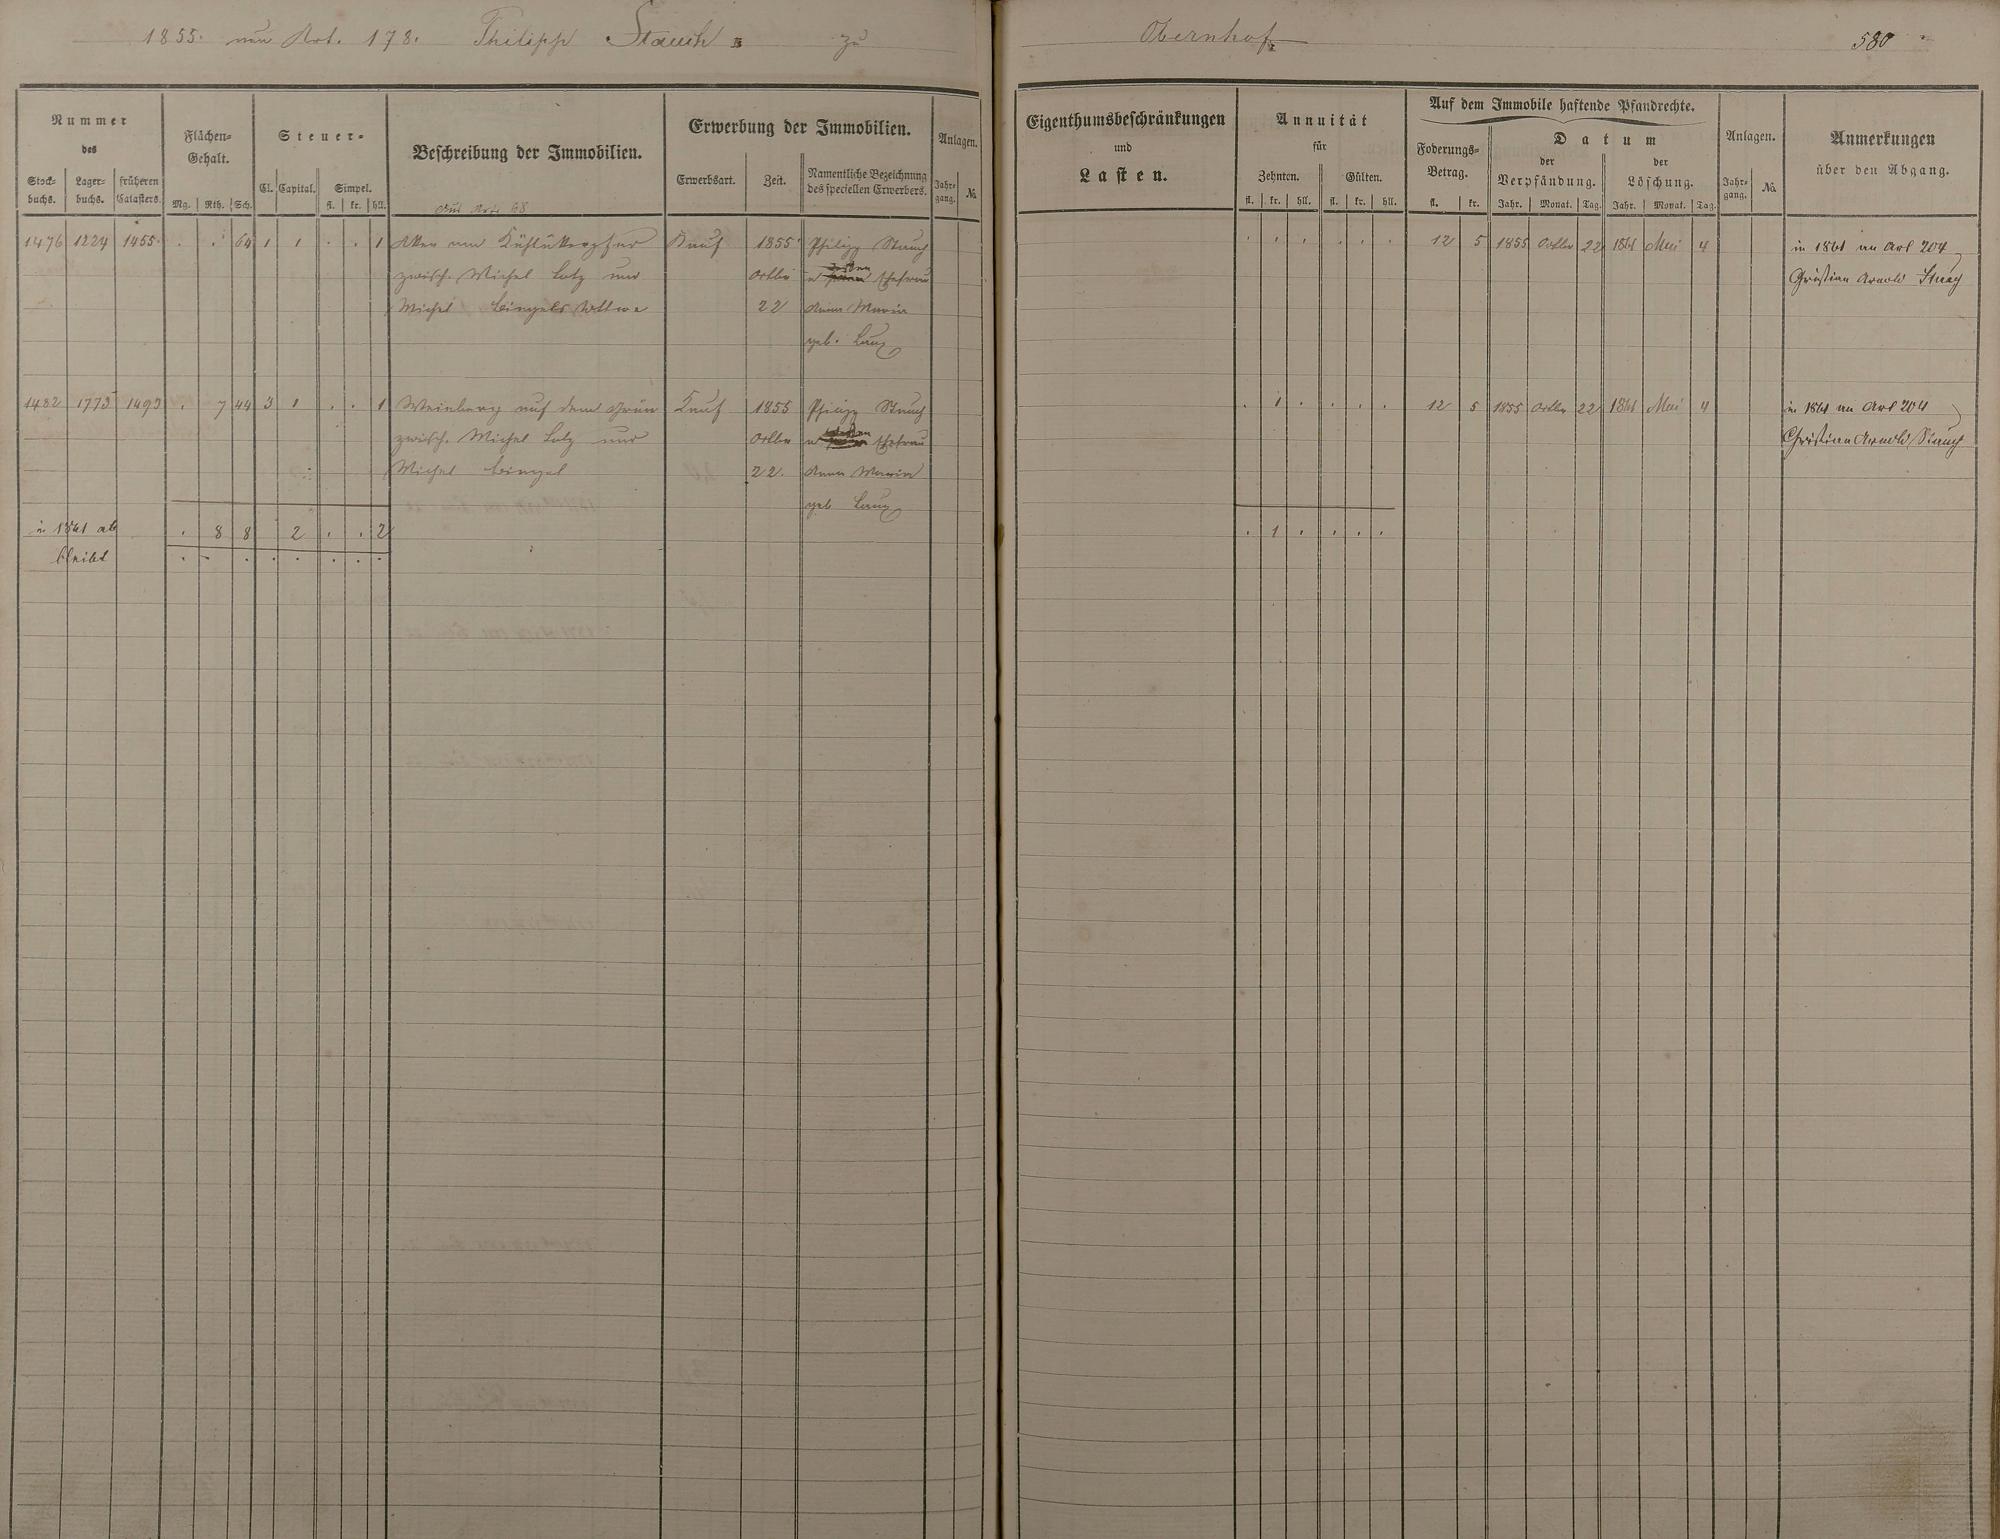 1855. neu Art. 178. Philipp Stauch zu Obernhof 580
Nummer
des
Stock-
buchs.
Lager-
buchs.
früheren
Catasters.
Flächen-
Gehalt.
Mg. Rth. Sch.
Steuer-
Cl. Capital. Simpel.
fl. kr. hll.
Beschreibung der Immobilien.
Erwerbung der Immobilien.
Erwerbsart. Zeit.
Namentliche Bezeichnung
des speciellen Erwerbers.
Anlagen.
Jahr-
gang.
No.
Eigenthumsbeschränkungen
und
Lasten.
Annuität
für
Zehnten. Gülten.
fl. kr. hll. fl. kr. hll.
Auf dem Immobile haftende Pfandrechte.
Foderungs-
Betrag.
fl. kr.
Datum
der
Verpfändung.
der
Löschung.
Jahr. Monat. Tag. Jahr. Monat. Tag.
Anlagen.
Jahr-
gang.
No.
Anmerkungen
über den Abgang.
1476 1224 1455 . . 64 1 1 . . 1 Kauf 1855 Philipp Stauch . . . . . . 12 5 1855 Octbr 22 1861 Mai 4 in 1861 an Art 204
zwisch. Michel Lotz und Octbr u dessen Ehefrau Christian Arnold Stauch
Michel Bingels Wittwe 22 Anna Maria
geb. Laux
1482 1773 1493 . 7 44 3 1 . . 1 Weinberg auf dem Grün Kauf 1855 Philipp Stauch . 1 . . . . 12 5 1855 Octbr 22 1861 Mai 4 in 1861 an Art 204
zwisch. Michel Lotz und Octbr u dessen Ehefrau Christian Arnold Stauch
Michel Bingel 22. Anna Maria
geb Laux
in 1861 ab . 8 8 2 . . 2 . 1 . . . .
bleibt . . . . . . . .